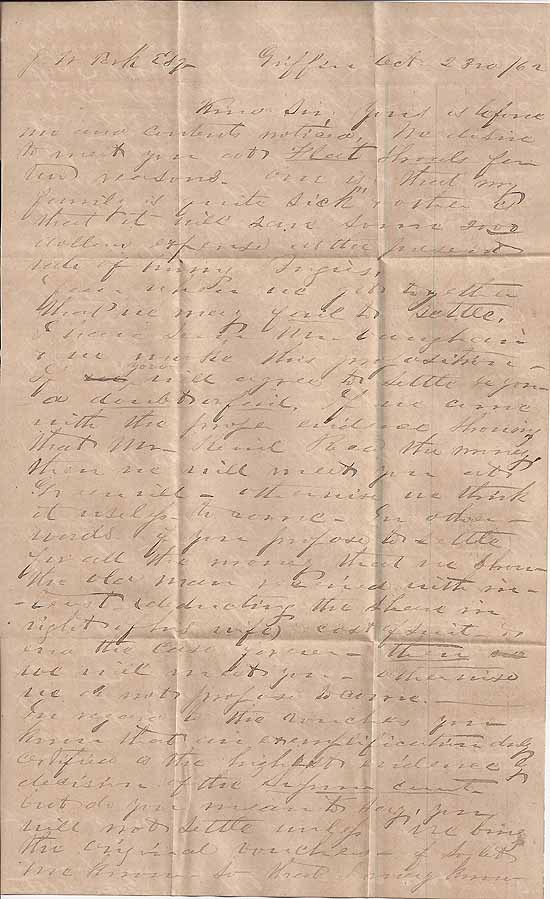 J W Park Esq Griffin Oct 23rd /62
Kind Sir, Yours is before
me and contents noticed. We desire
to meet you at Flat Shoals for
two reasons. One is that my
family is quite sick other is
that it will save some 200
dollars expense at the present
rate of
when we get together
that we may fail to settle.
I have seen
& we make this proposition
If you will agree to settle beyon
a doubt. If we come
with the proper evidence showing
that Mr Recd the money
then we will meet you at
Greenville - otherwise we think
it useless to come - In other
words if you propose to settle
for all the money that we show
the old man received with in-
-terest (deducting the share in
right of his wife) cost of suit &
end the case forever - then
we will meet you - otherwise
we do not propose to come.
In regard to the vouchers you
know that an exemplification duly
certified is the highest evidence by
decision of the Supreme court
but do you mean to say, you
will not settle unless we bring
the original vouchers - if so let
me know so that I may know